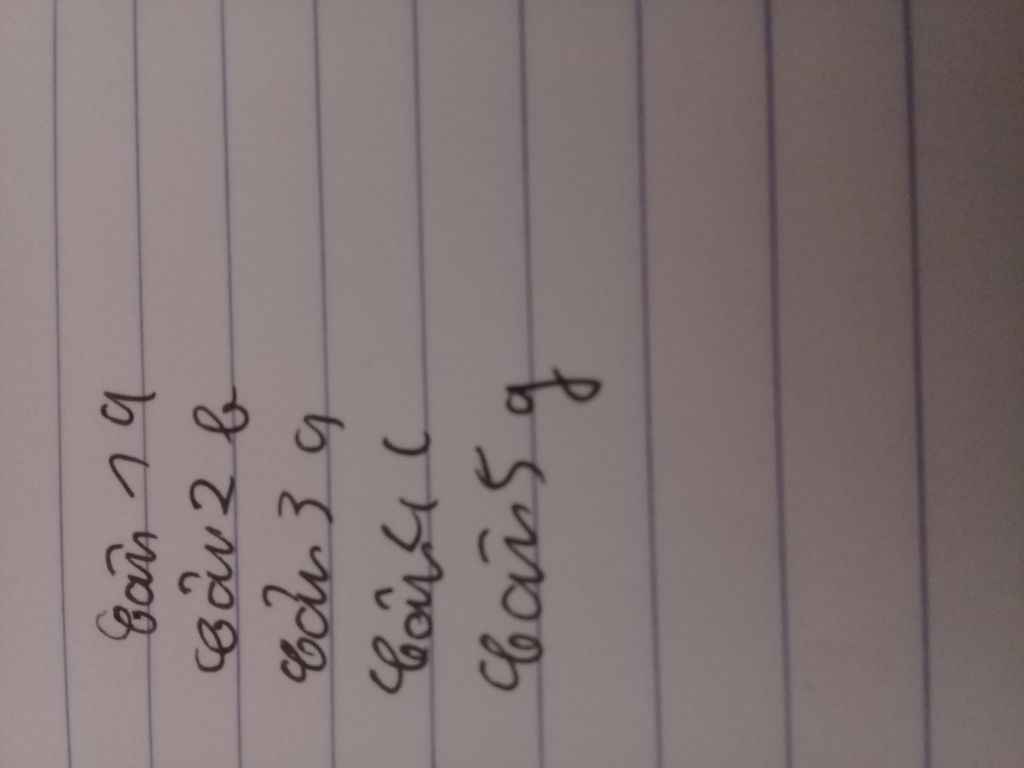 Câu 1 a
Câu 2 b
Câu 3 a
Câu 4 c
Câu 5 g